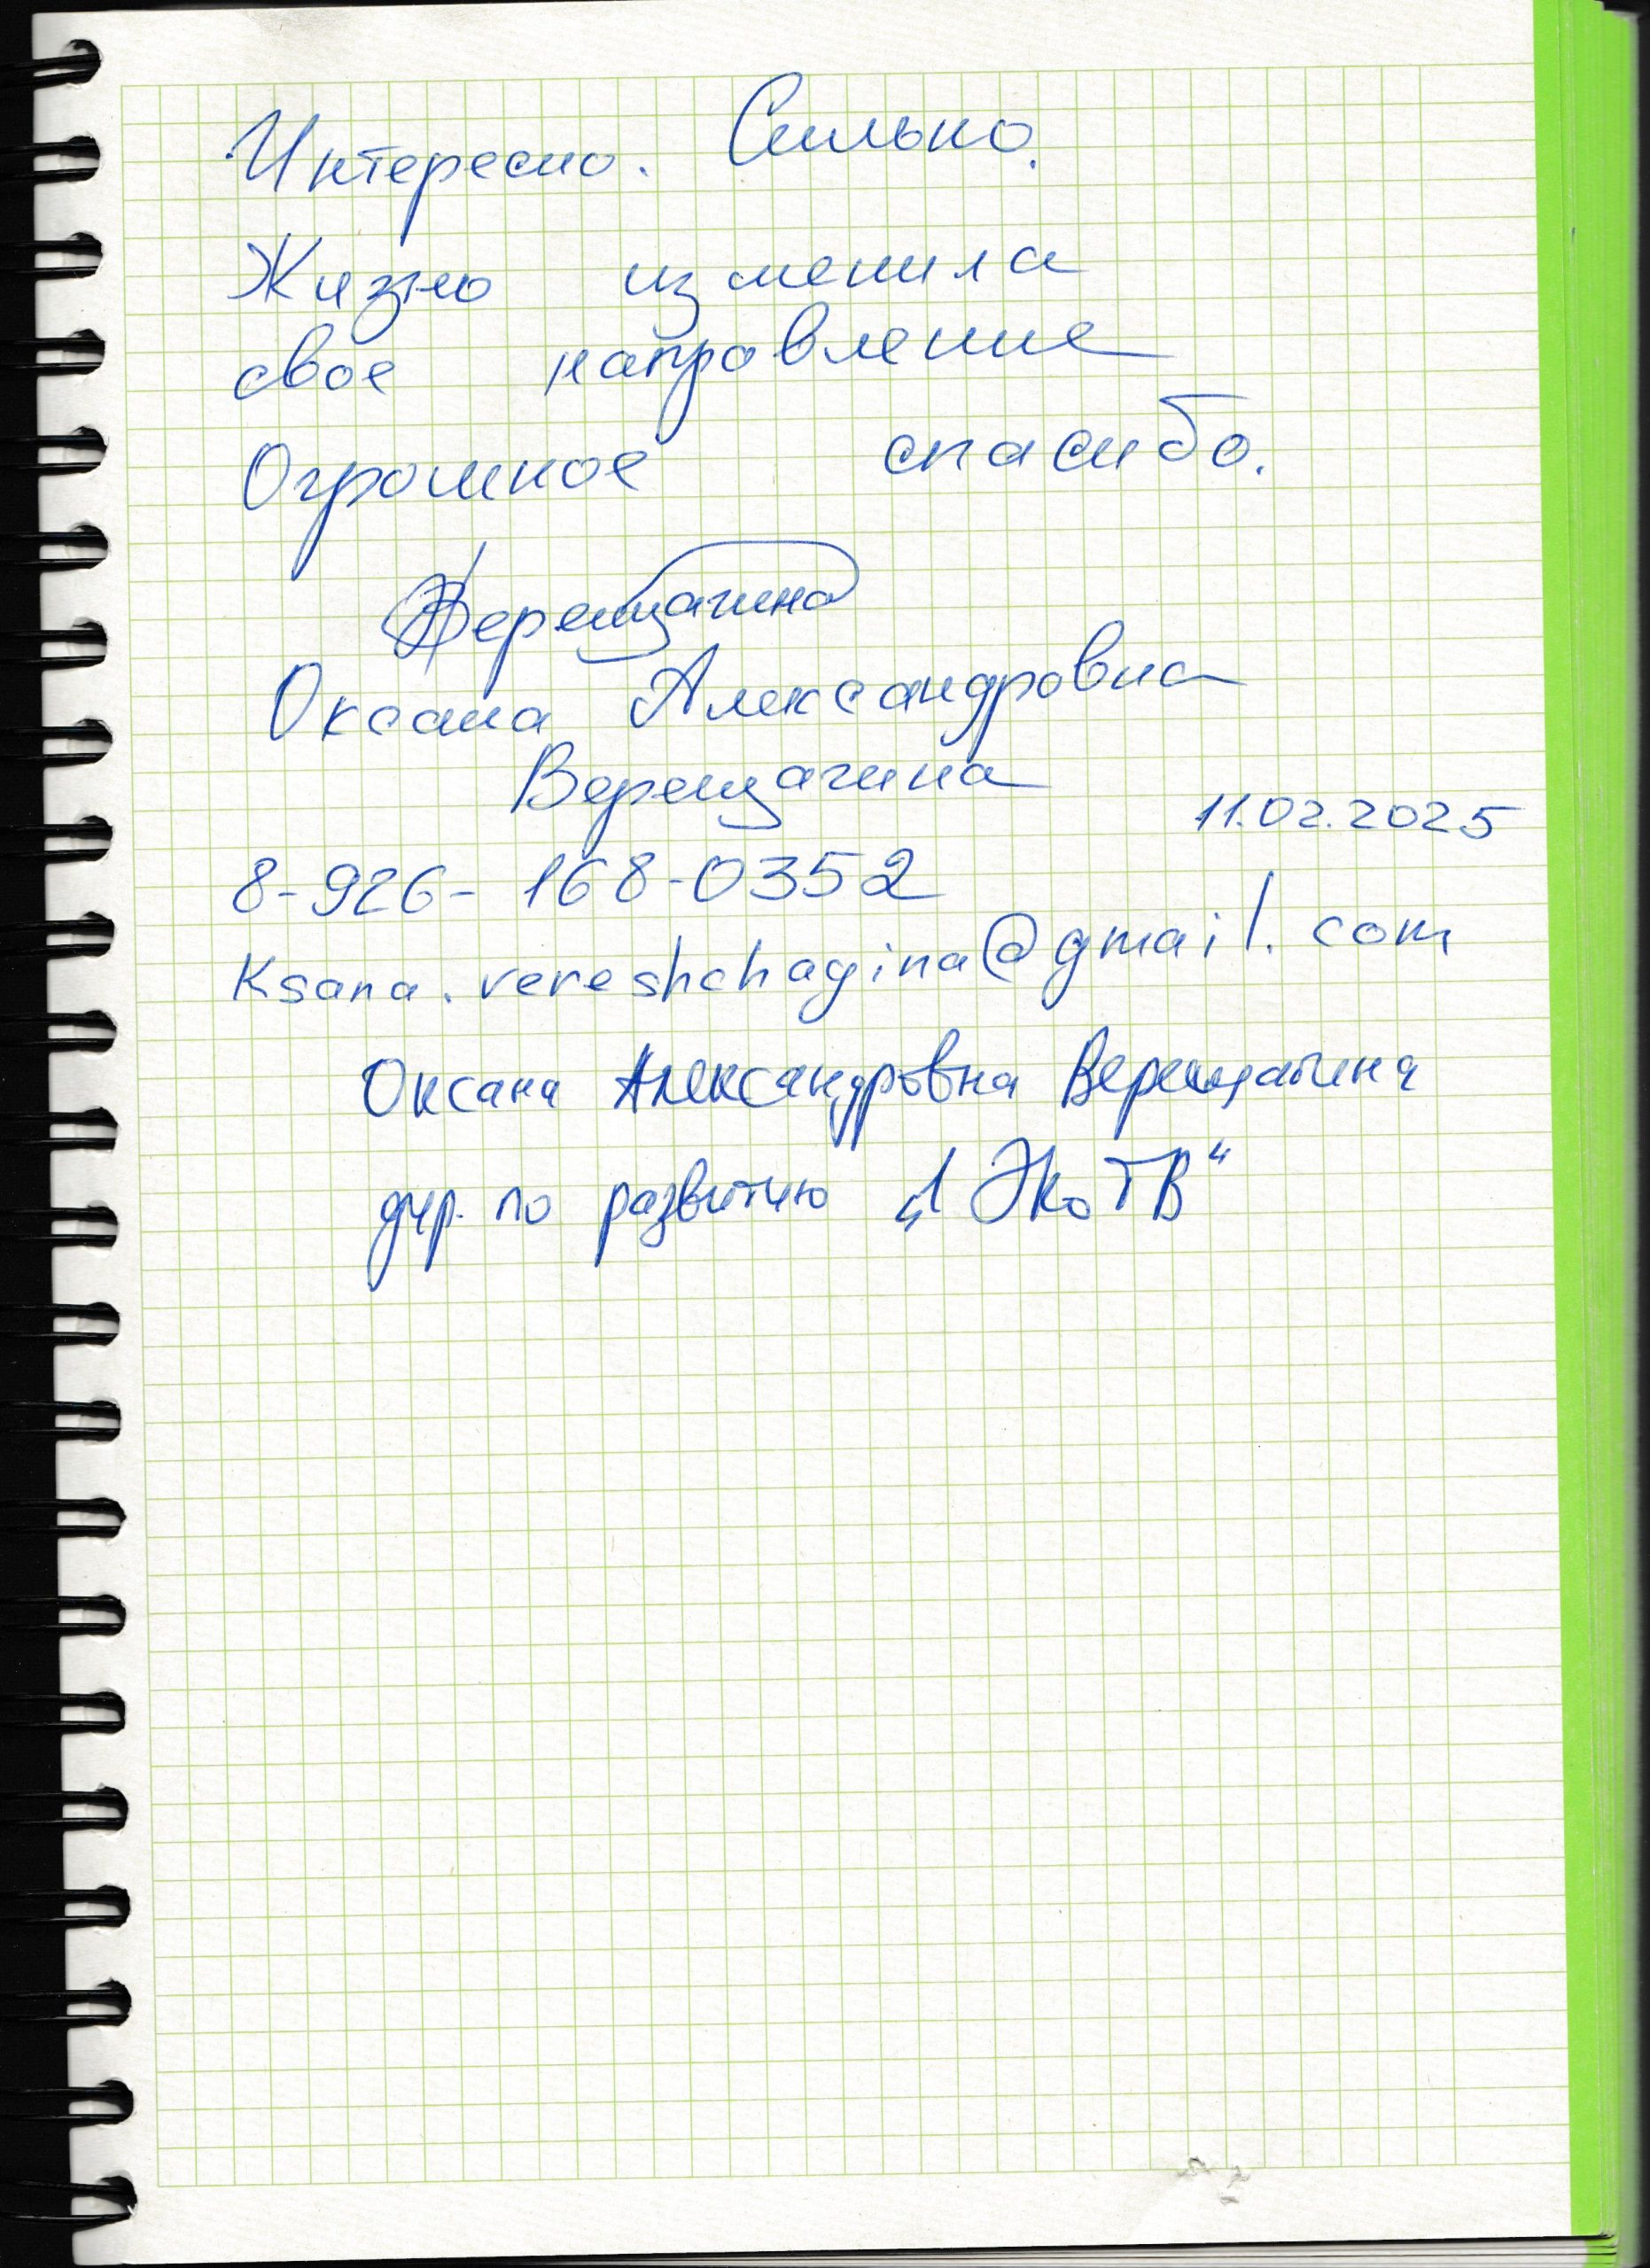 Интересно. Сильно.
Жизнь изменила
свое направление
Огромное спасибо.
Верещагина
Оксана Александровна
Верещагина
11.02.2025
8-926-168-0352
Ksana.vereshchagina@gmail.com
Оксана Александровна Верещагина
дир. по развитию „1 ЭкоТВ“